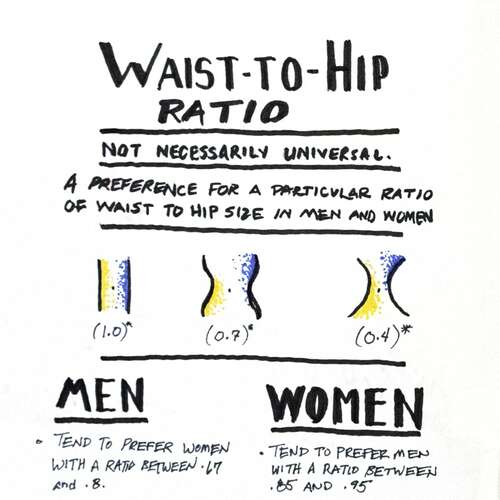 WAIST-TO-HIP
RATIO
NOT NECESSARILY UNIVERSAL.
A PREFERENCE FOR A PARTICULAR RATIO
OF WAIST TO HIP SIZE IN MEN AND WOMEN
(1.0)* (0.7)* (0.4)*
MEN
• TEND TO PREFER WOMEN
WITH A RATIO BETWEEN .67
and .8.
WOMEN
• TEND TO PREFER MEN
WITH A RATIO BETWEEN
.85 AND .95